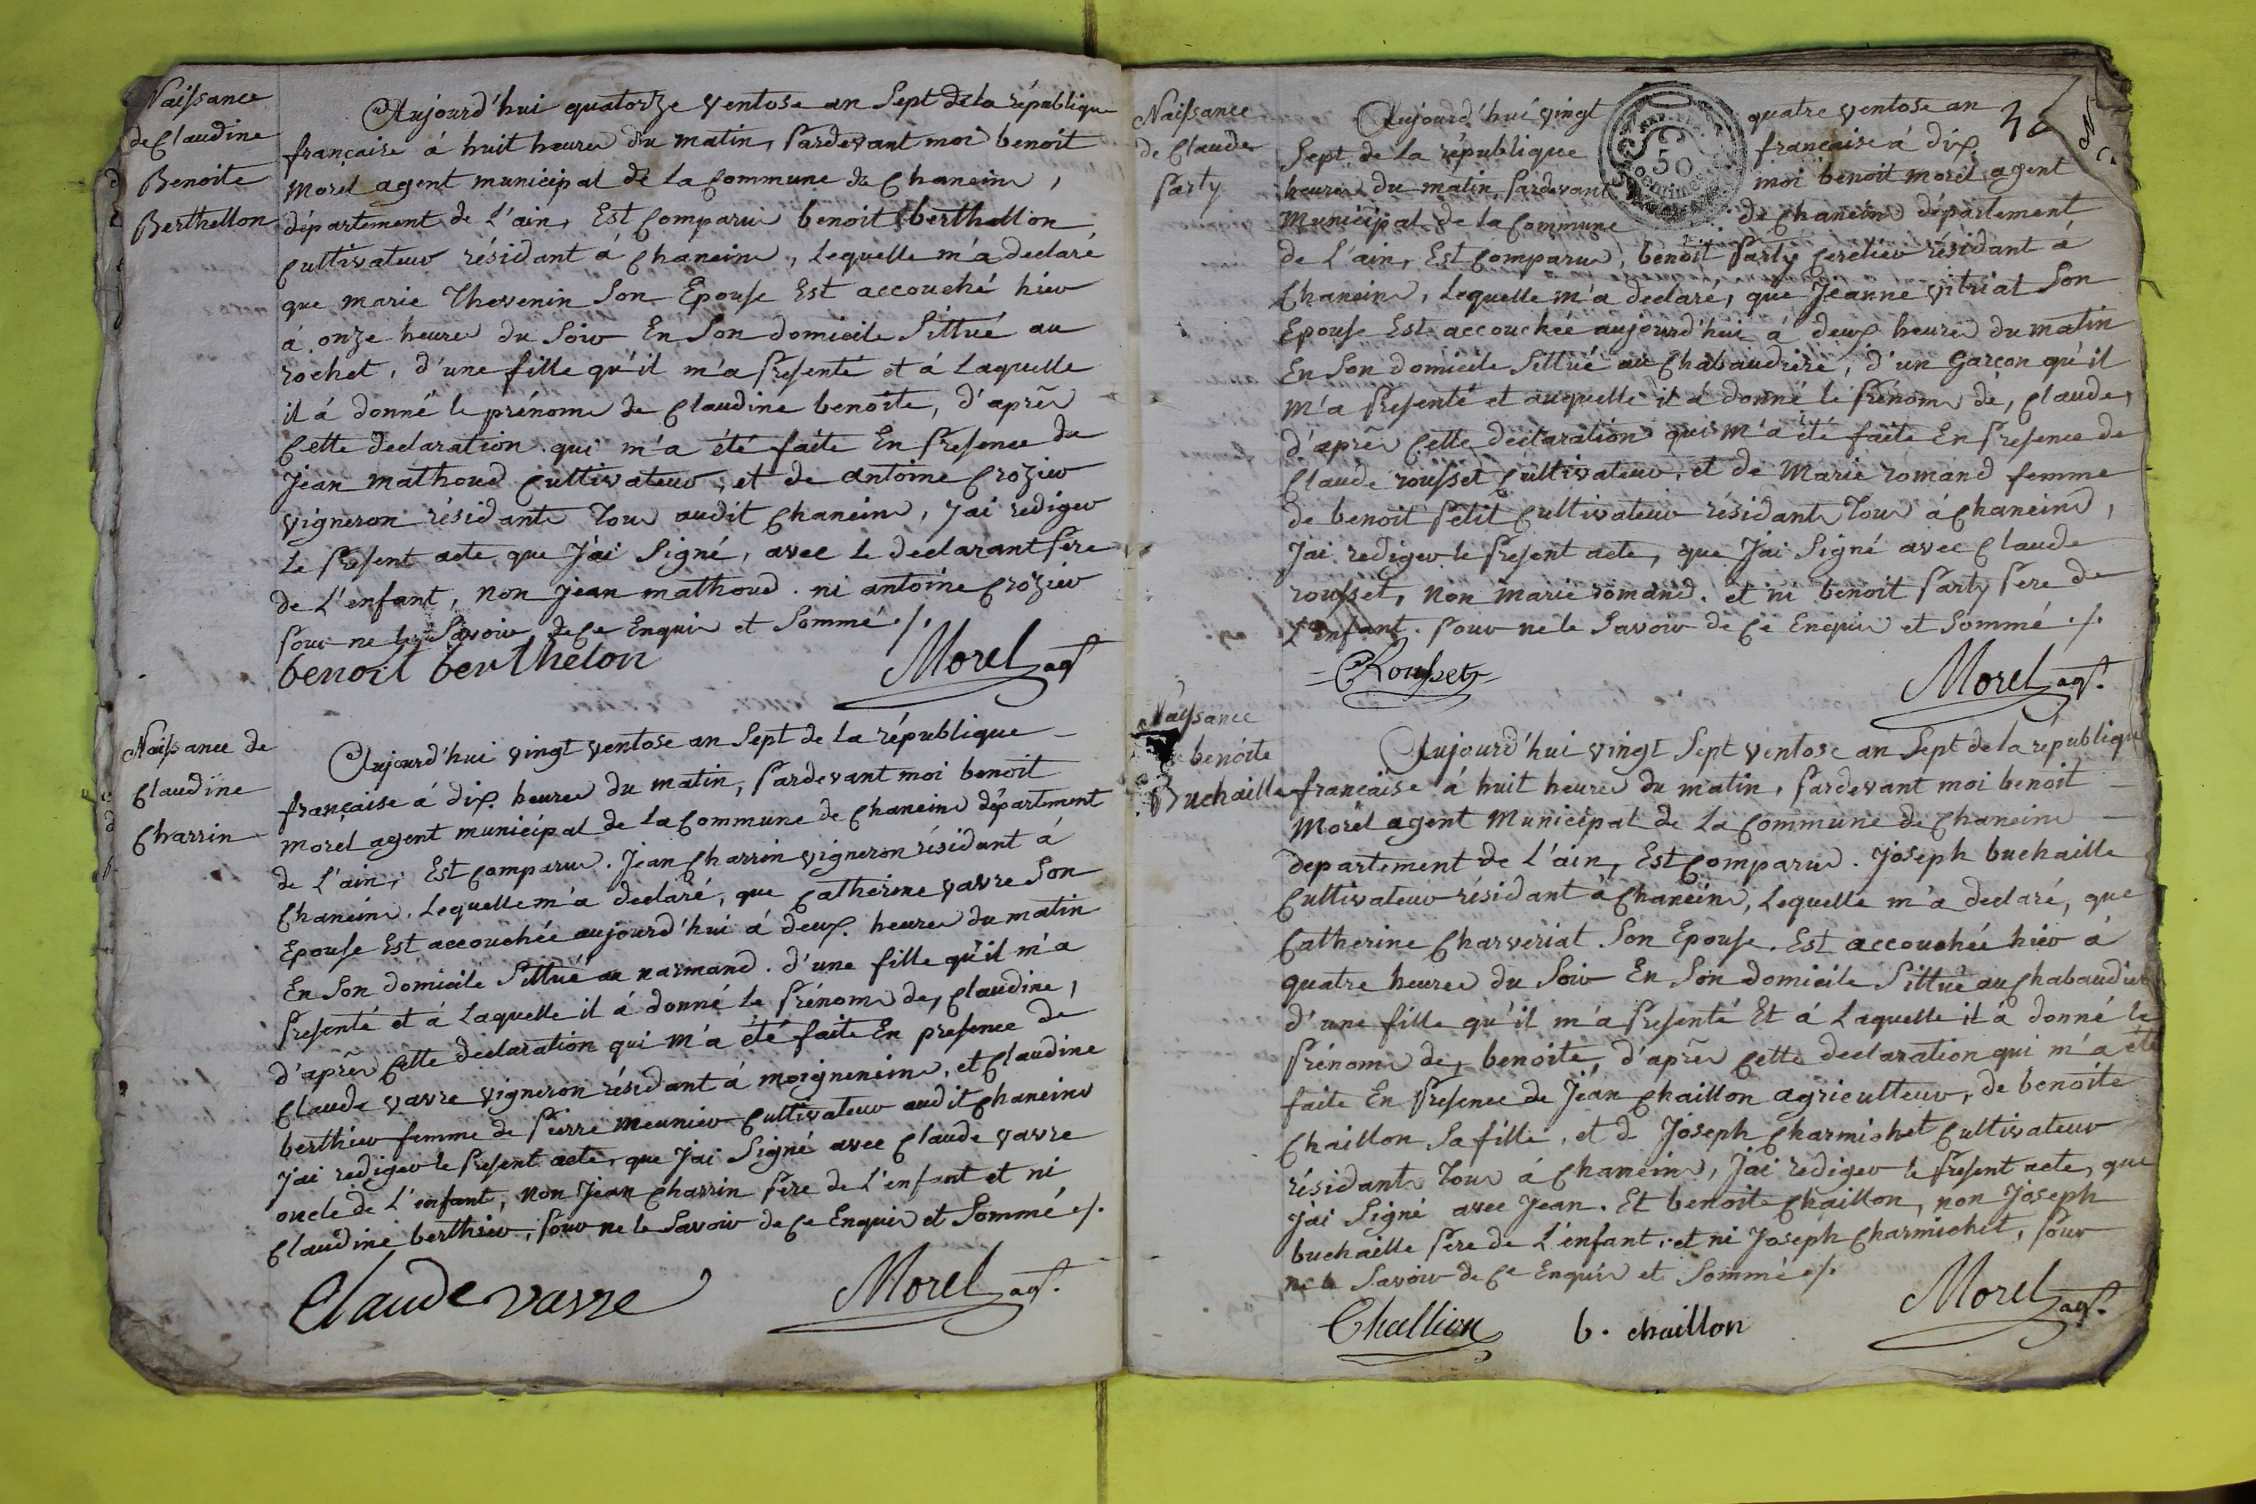 Naissance
de Claudine
Benoite
Berthellon
Aujourd'hui quatorze ventose an Sept de la république
française á huit heures du matin, pardevant moi benoit
Morel agent municipal de la Commune de Chaneins,
département de L'ain, Est Comparus benoit berthellon,
Cultivateur résidant á Chaneins, Lequelle m'a declaré
que marie Thevenin Son Epouse Est accouché hier
á onze heures du Soir En Son domicile Sittué au
rochet, d'une fille qu'il m'a presenté et á Laquelle
il á donné le prénoms de Claudine benoite, d'après
Cette declaration qui m'a été faite En presence de
Jean mathoud Cultivateur, et de antoine Crozier
vigneron résidants Tous audit Chaneins, J'ai rediger
Le present acte que J'ai Signé, avec le declarant pere
de L'enfant, non Jean mathoud ni antoine Crozier
pour ne le Savoir de Ce Enquis et Sommé ./.
benoit berthelon
Morel agt
Naissance de
Claudine
Charrin
Aujourd'hui vingt ventose an Sept de la république
française á dix heures du matin, pardevant moi benoit
morel agent municipal de la Commune de Chaneins département
de L'ain, Est Comparus. Jean Charrin vigneron résidant á
Chaneins, Lequelle m'á declaré, que Catherine vavre Son
Epouse Est accouchée aujourd'hui á deux heures du matin
En Son domicile Sittué au narmand. d'une fille qu'il m'a
presenté et á Laquelle il á donné le prénoms de, Claudine,
d'après Cette declaration qui m'a été faite En presence de
Claude vavre vigneron résidant á moigneneins, et Claudine
berthier femme de pierre meunier Cultivateur audit Chaneins
J'ai rediger le present acte, que J'ai Signé avec Claude vavre
oncle de L'enfant, non Jean Charrin pere de L'enfant et ni
Claudine berthier, pour ne le Savoir de Ce Enquis et Sommé ./.
Claude vavre
Morel agt.
Naissance
de Claude
party
Aujourd'hui vingt quatre ventose an
Sept de la république française á dix
heures du matin, pardevant moi benoit morel agent
Municipal de la Commune de Chaneins département
50
de L'ain, Est Comparus, benoit party Cerclier résidant á
Chaneins, Lequelle m'a declaré, que Jeanne vitriat Son
Epouse Est accouchée aujourd'hui á deux heures du matin
En Son domicile Sittué au Chabaudrire, d'un Garçon qu'il
m'a presenté et auquelle il á donné le prénoms de, Claude,
d'après Cette declaration qui m'a été faite En presence de
Claude rousset Cultivateur, et de Marie romand femme
de benoit petit Cultivateur résidants Tous á Chaneins,
J'ai rediger le present acte, que J'ai Signé avec Claude
rousset, non marie romand. et ni benoit party pere de
L'enfant. pour ne le Savoir de Ce Enquis et Sommé ./.
Rousset
Morel agt.
Naissance
benoite
Buchaille
Aujourd'hui vingt Sept ventose an Sept de la republique
française á huit heures du matin, pardevant moi benoit
Morel agent Municipal de La Commune de Chaneins
departement de L'ain, Est Comparus. Joseph buchaille
Cultivateur résidant á Chaneins, Lequelle m'á declaré, que
Catherine Charveriat Son Epouse. Est accouchée hier á
quatre heures du Soir En Son domicile Sittué au Chabaudier
d'une fille qu'il m'a presenté Et á Laquelle il á donné le
prénoms de, benoite, d'après Cette declaration qui m'a été
faite En presence de Jean Chaillon agriculteur, de benoite
Chaillon Sa fille, et d Joseph Charmichet Cultivateur
résidants Tous á Chaneins, J'ai rediger le present acte, que
J'ai Signé avec Jean. Et benoite Chaillon, non Joseph
buchaille pere de L'enfant, et ni Joseph Charmichet, pour
ne le Savoir de Ce Enquis et Sommé ./.
Chaillion
b. chaillon
Morel agt.